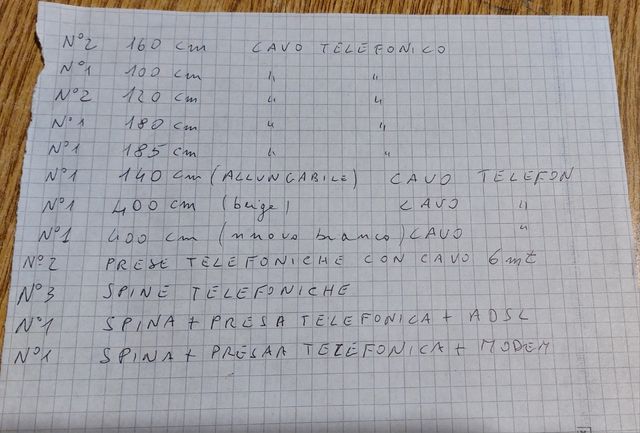 N°2 160 cm CAVO TELEFONICO
N°1 100 cm " "
N°2 120 cm " "
N°1 180 cm " "
N°1 185 cm " "
N°1 140 cm (ALLUNGABILE) CAVO TELEFON
N°1 400 cm (beige) CAVO "
N°1 400 cm (nuovo bianco) CAVO "
N°2 PRESE TELEFONICHE CON CAVO 6 mt
N°3 SPINE TELEFONICHE
N°1 SPINA + PRESA TELEFONICA + ADSL
N°1 SPINA + PRESAA TELEFONICA + MODEM